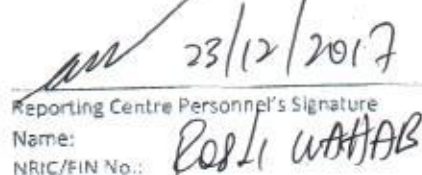 23/12/2017
Reporting Centre Personnel's Signature
Name: ROSLI WAHAB
NRIC/FIN No.: